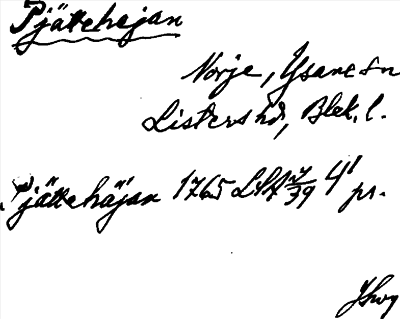 Pjättehejan
Norje, Ysane sn
Listers hd, Blek. l.
Pjättehäjan 1765 4' pr.